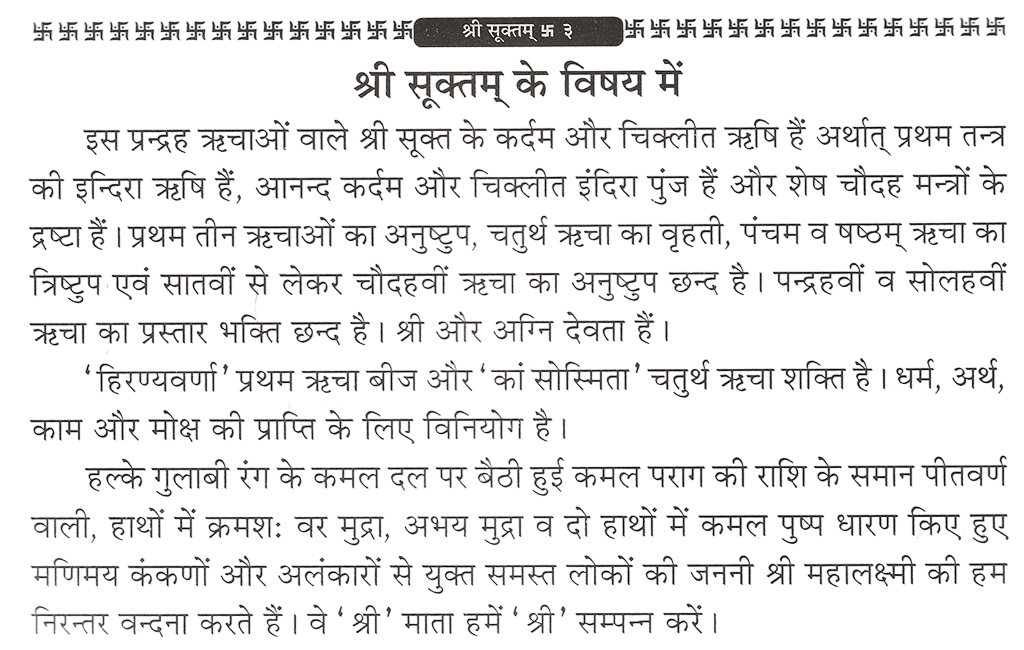 श्री सूक्तम् 卐 ३
श्री सूक्तम् के विषय में
इस प्रन्द्रह ऋचाओं वाले श्री सूक्त के कर्दम और चिक्लीत ऋषि हैं अर्थात् प्रथम तन्त्र
की इन्दिरा ऋषि हैं, आनन्द कर्दम और चिक्लीत इंदिरा पुंज हैं और शेष चौदह मन्त्रों के
द्रष्टा हैं। प्रथम तीन ऋचाओं का अनुष्टुप, चतुर्थ ऋचा का वृहती, पंचम व षष्ठम् ऋचा का
त्रिष्टुप एवं सातवीं से लेकर चौदहवीं ऋचा का अनुष्टुप छन्द है। पन्द्रहवीं व सोलहवीं
ऋचा का प्रस्तार भक्ति छन्द है। श्री और अग्नि देवता हैं।
‘हिरण्यवर्णा’ प्रथम ऋचा बीज और ‘कां सोस्मिता’ चतुर्थ ऋचा शक्ति है। धर्म, अर्थ,
काम और मोक्ष की प्राप्ति के लिए विनियोग है।
हल्के गुलाबी रंग के कमल दल पर बैठी हुई कमल पराग की राशि के समान पीतवर्ण
वाली, हाथों में क्रमश: वर मुद्रा, अभय मुद्रा व दो हाथों में कमल पुष्प धारण किए हुए
मणिमय कंकणों और अलंकारों से युक्त समस्त लोकों की जननी श्री महालक्ष्मी की हम
निरन्तर वन्दना करते हैं। वे ‘श्री’ माता हमें ‘श्री’ सम्पन्न करें।